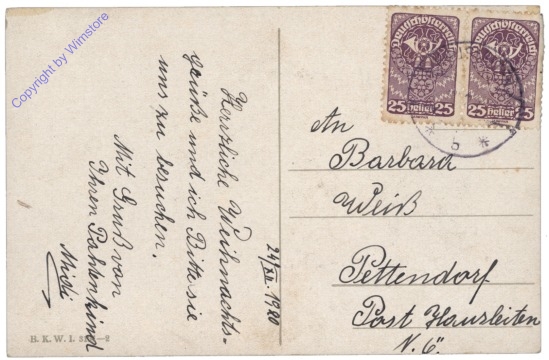 Copyright by Wimstore
Deutschösterreich
25 heller 25
Deutschösterreich
25 heller 25
b
Herzliche Weihnachts-
grüße und ich Bitte sie
uns zu besuchen.
Mit Gruß von
Ihren Pathenkind
Midi
24/XII 1920
An
Barbara
Weiß
Pettendorf
Post Hausleiten
N. 6"
B. K. W. I.